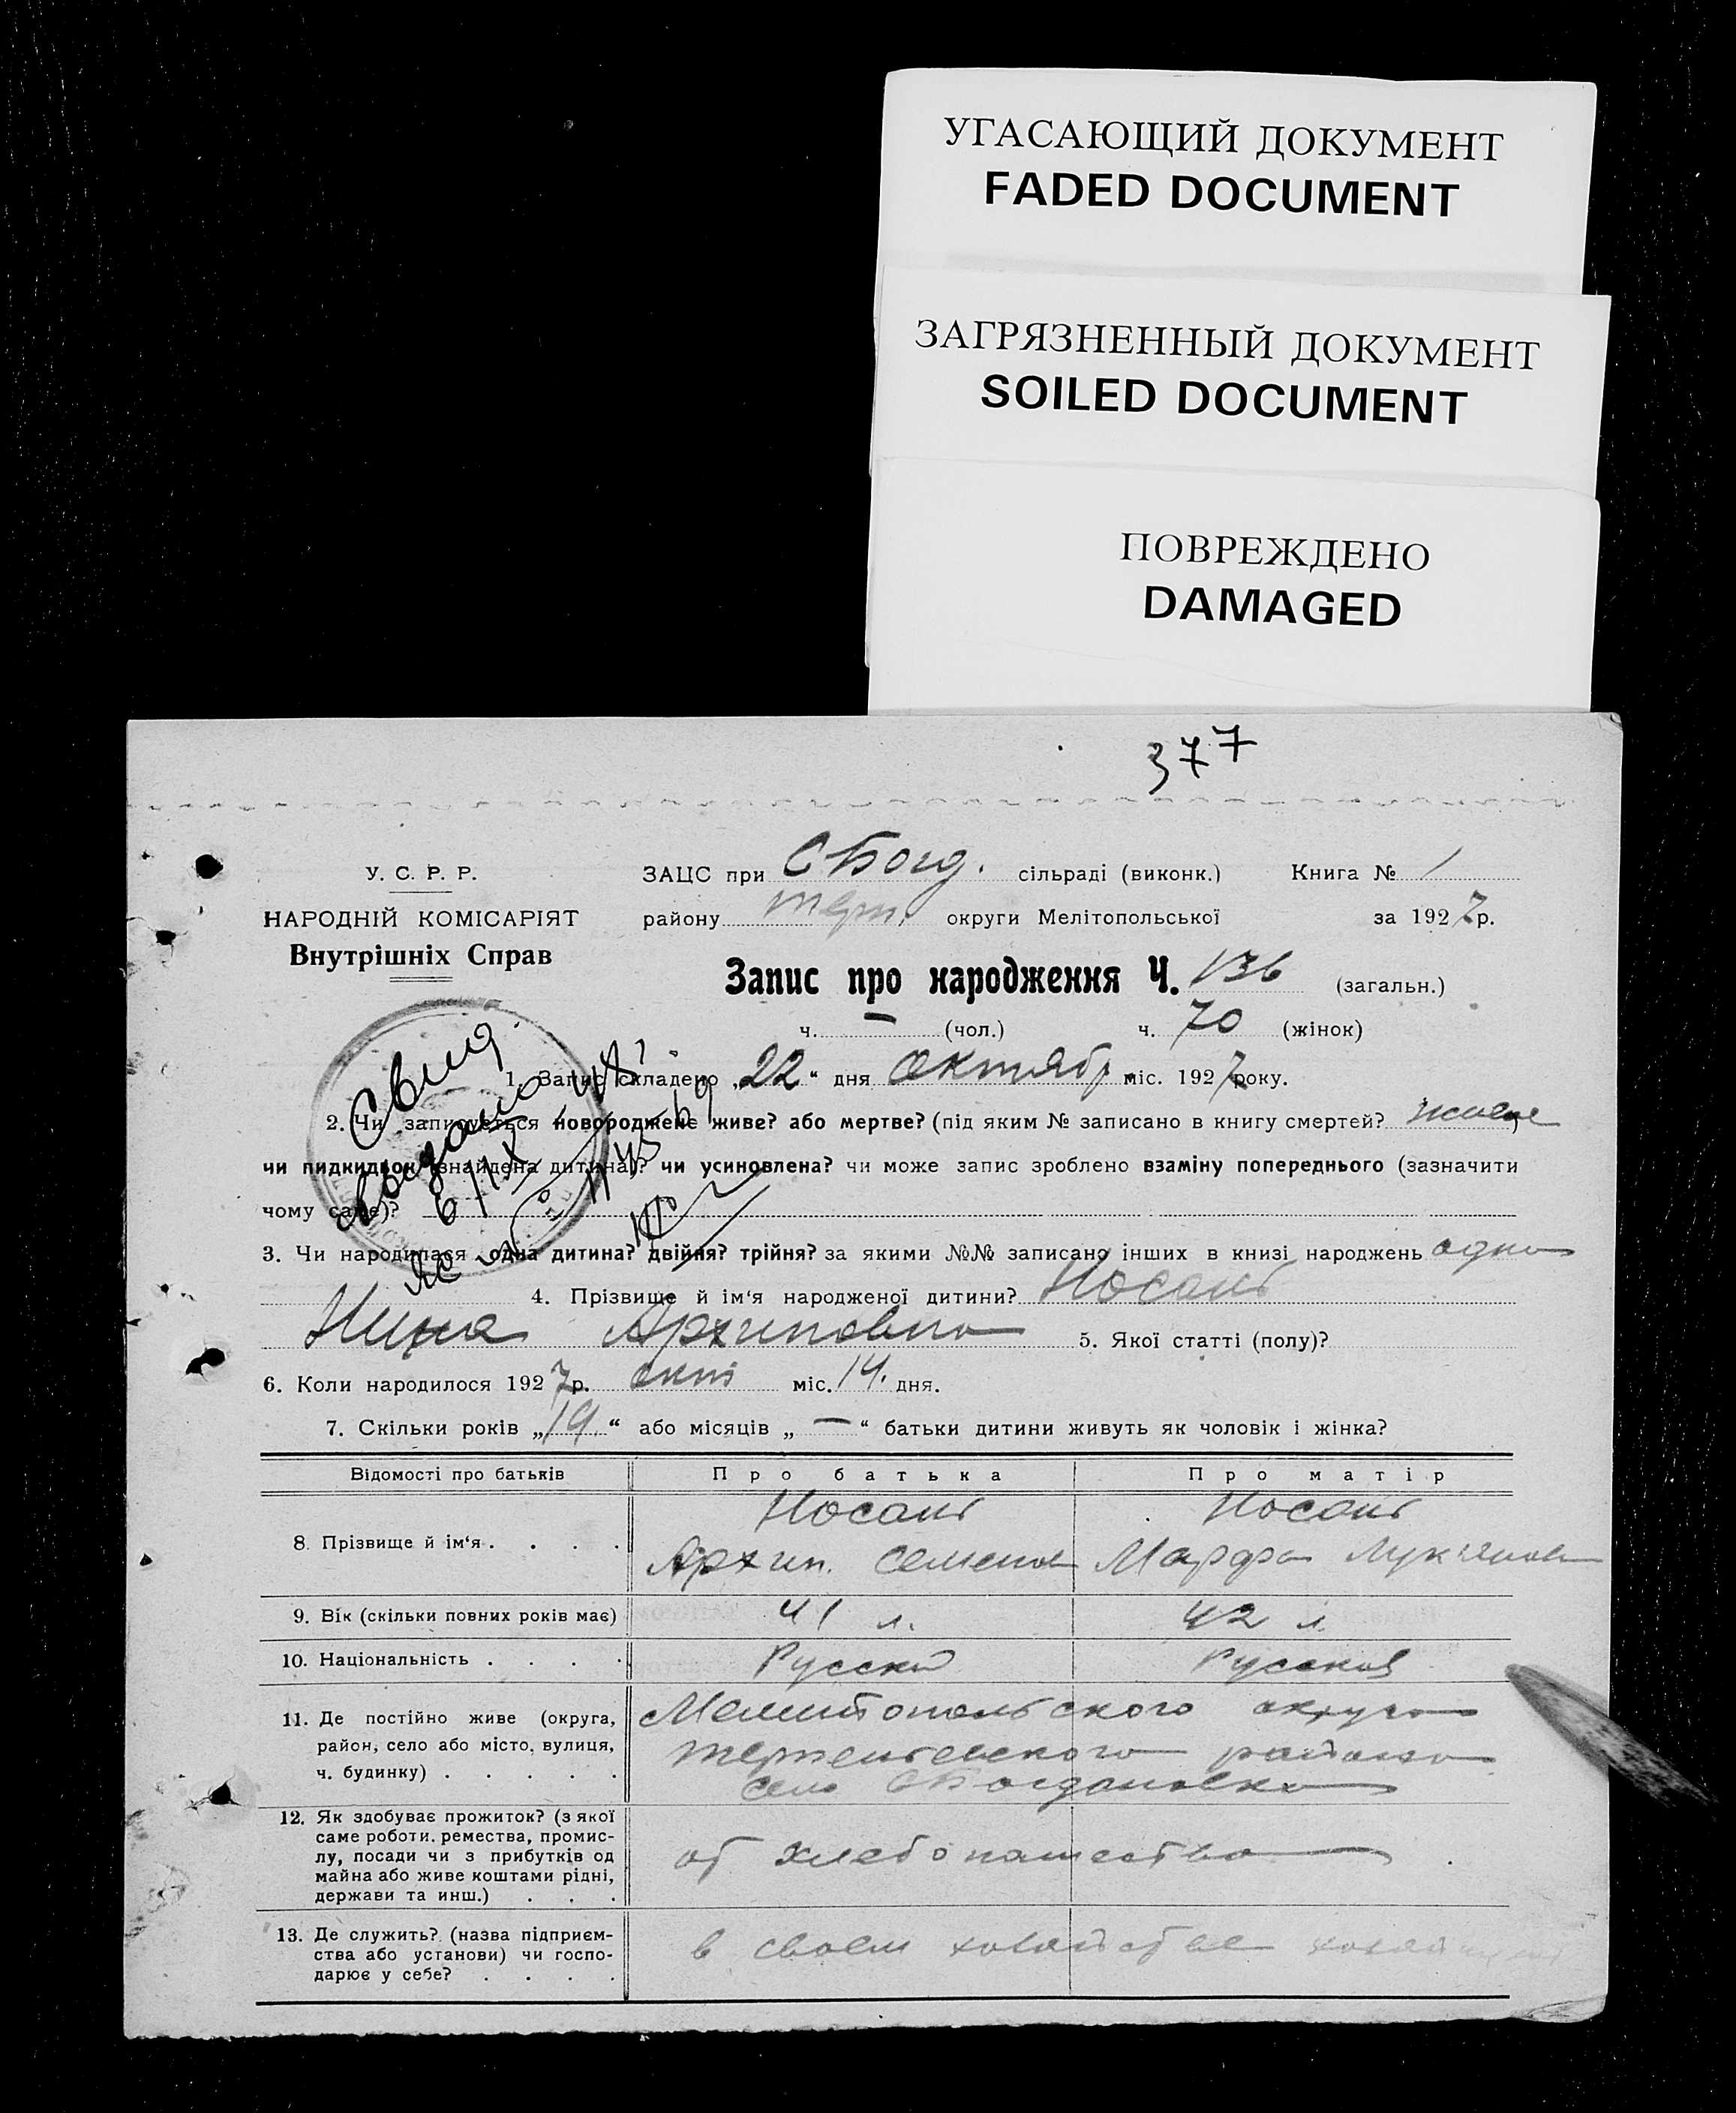 УГАСАЮЩИЙ ДОКУМЕНТ
FADED DOCUMENT
ЗАГРЯЗНЕННЫЙ ДОКУМЕНТ
SOILED DOCUMENT
ПОВРЕЖДЕНО
DAMAGED
377
У. С. Р. Р.
НАРОДНІЙ КОМІСАРІЯТ
Внутрішніх Справ
ЗАЦС при С Богд. сільраді (виконк.) Книга № 1
району Терп. округи Мелітопольської за 1927 р.
Запис про народження Ч. 136 (загальн.)
ч. — (чол.) ч. 70 (жінок)
Свид
выдано
6/IX
1. Запис складено „22“ дня Октябр міс. 1927 року.
2. Чи записується новороджене живе? або мертве? (під яким № записано в книгу смертей? живое)
чи пидкидьок (знайдена дитина)? чи усиновлена? чи може запис зроблено взаміну попереднього (зазначити
чому саме)?
3. Чи народилася одна дитина? двійня? трійня? за якими №№ записано інших в книзі народжень одна
4. Прізвище й ім‘я народженої дитини? Носань
Нина Архиповна 5. Якої статті (полу)?
6. Коли народилося 1927 р. окт міс. 14. дня.
7. Скільки років „19.“ або місяців „—“ батьки дитини живуть як чоловік і жінка?
Відомості про батьків Про батька Про матір
8. Прізвище й ім‘я . . . . Носань Носань
Архип. Семенов Марфа Лукʼянов
9. Вік (скільки повних років має) 41 л. 42 л.
10. Національність . . . . Русский Русская
11. Де постійно живе (округа, Мелитопольского округа
район, село або місто, вулиця, Терпеньевского района
ч. будинку) . . . . . село Богдановка
12. Як здобуває прожиток? (з якої
саме роботи. ремества, промис-
лу, посади чи з прибутків од от хлебопашества
майна або живе коштами рідні,
держави та инш.) . . .
13. Де служить? (назва підприєм-
ства або установи) чи госпо- в своем хозяйстве
дарює у себе? . . . .